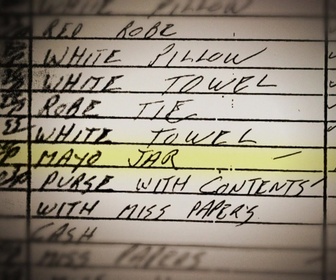 WHITE PILLOW
RED ROBE
WHITE PILLOW
WHITE TOWEL
ROBE TIE
WHITE TOWEL
MAYO JAR
PURSE WITH CONTENTS
WITH MISS PAPERS
CASH
MISS PAPERS